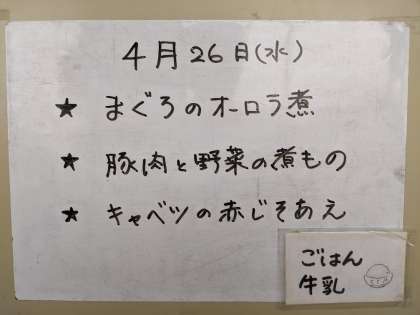 4月26日(水)
★ まぐろのオーロラ煮
★ 豚肉と野菜の煮もの
★ キャベツの赤じそあえ
ごはん
牛乳